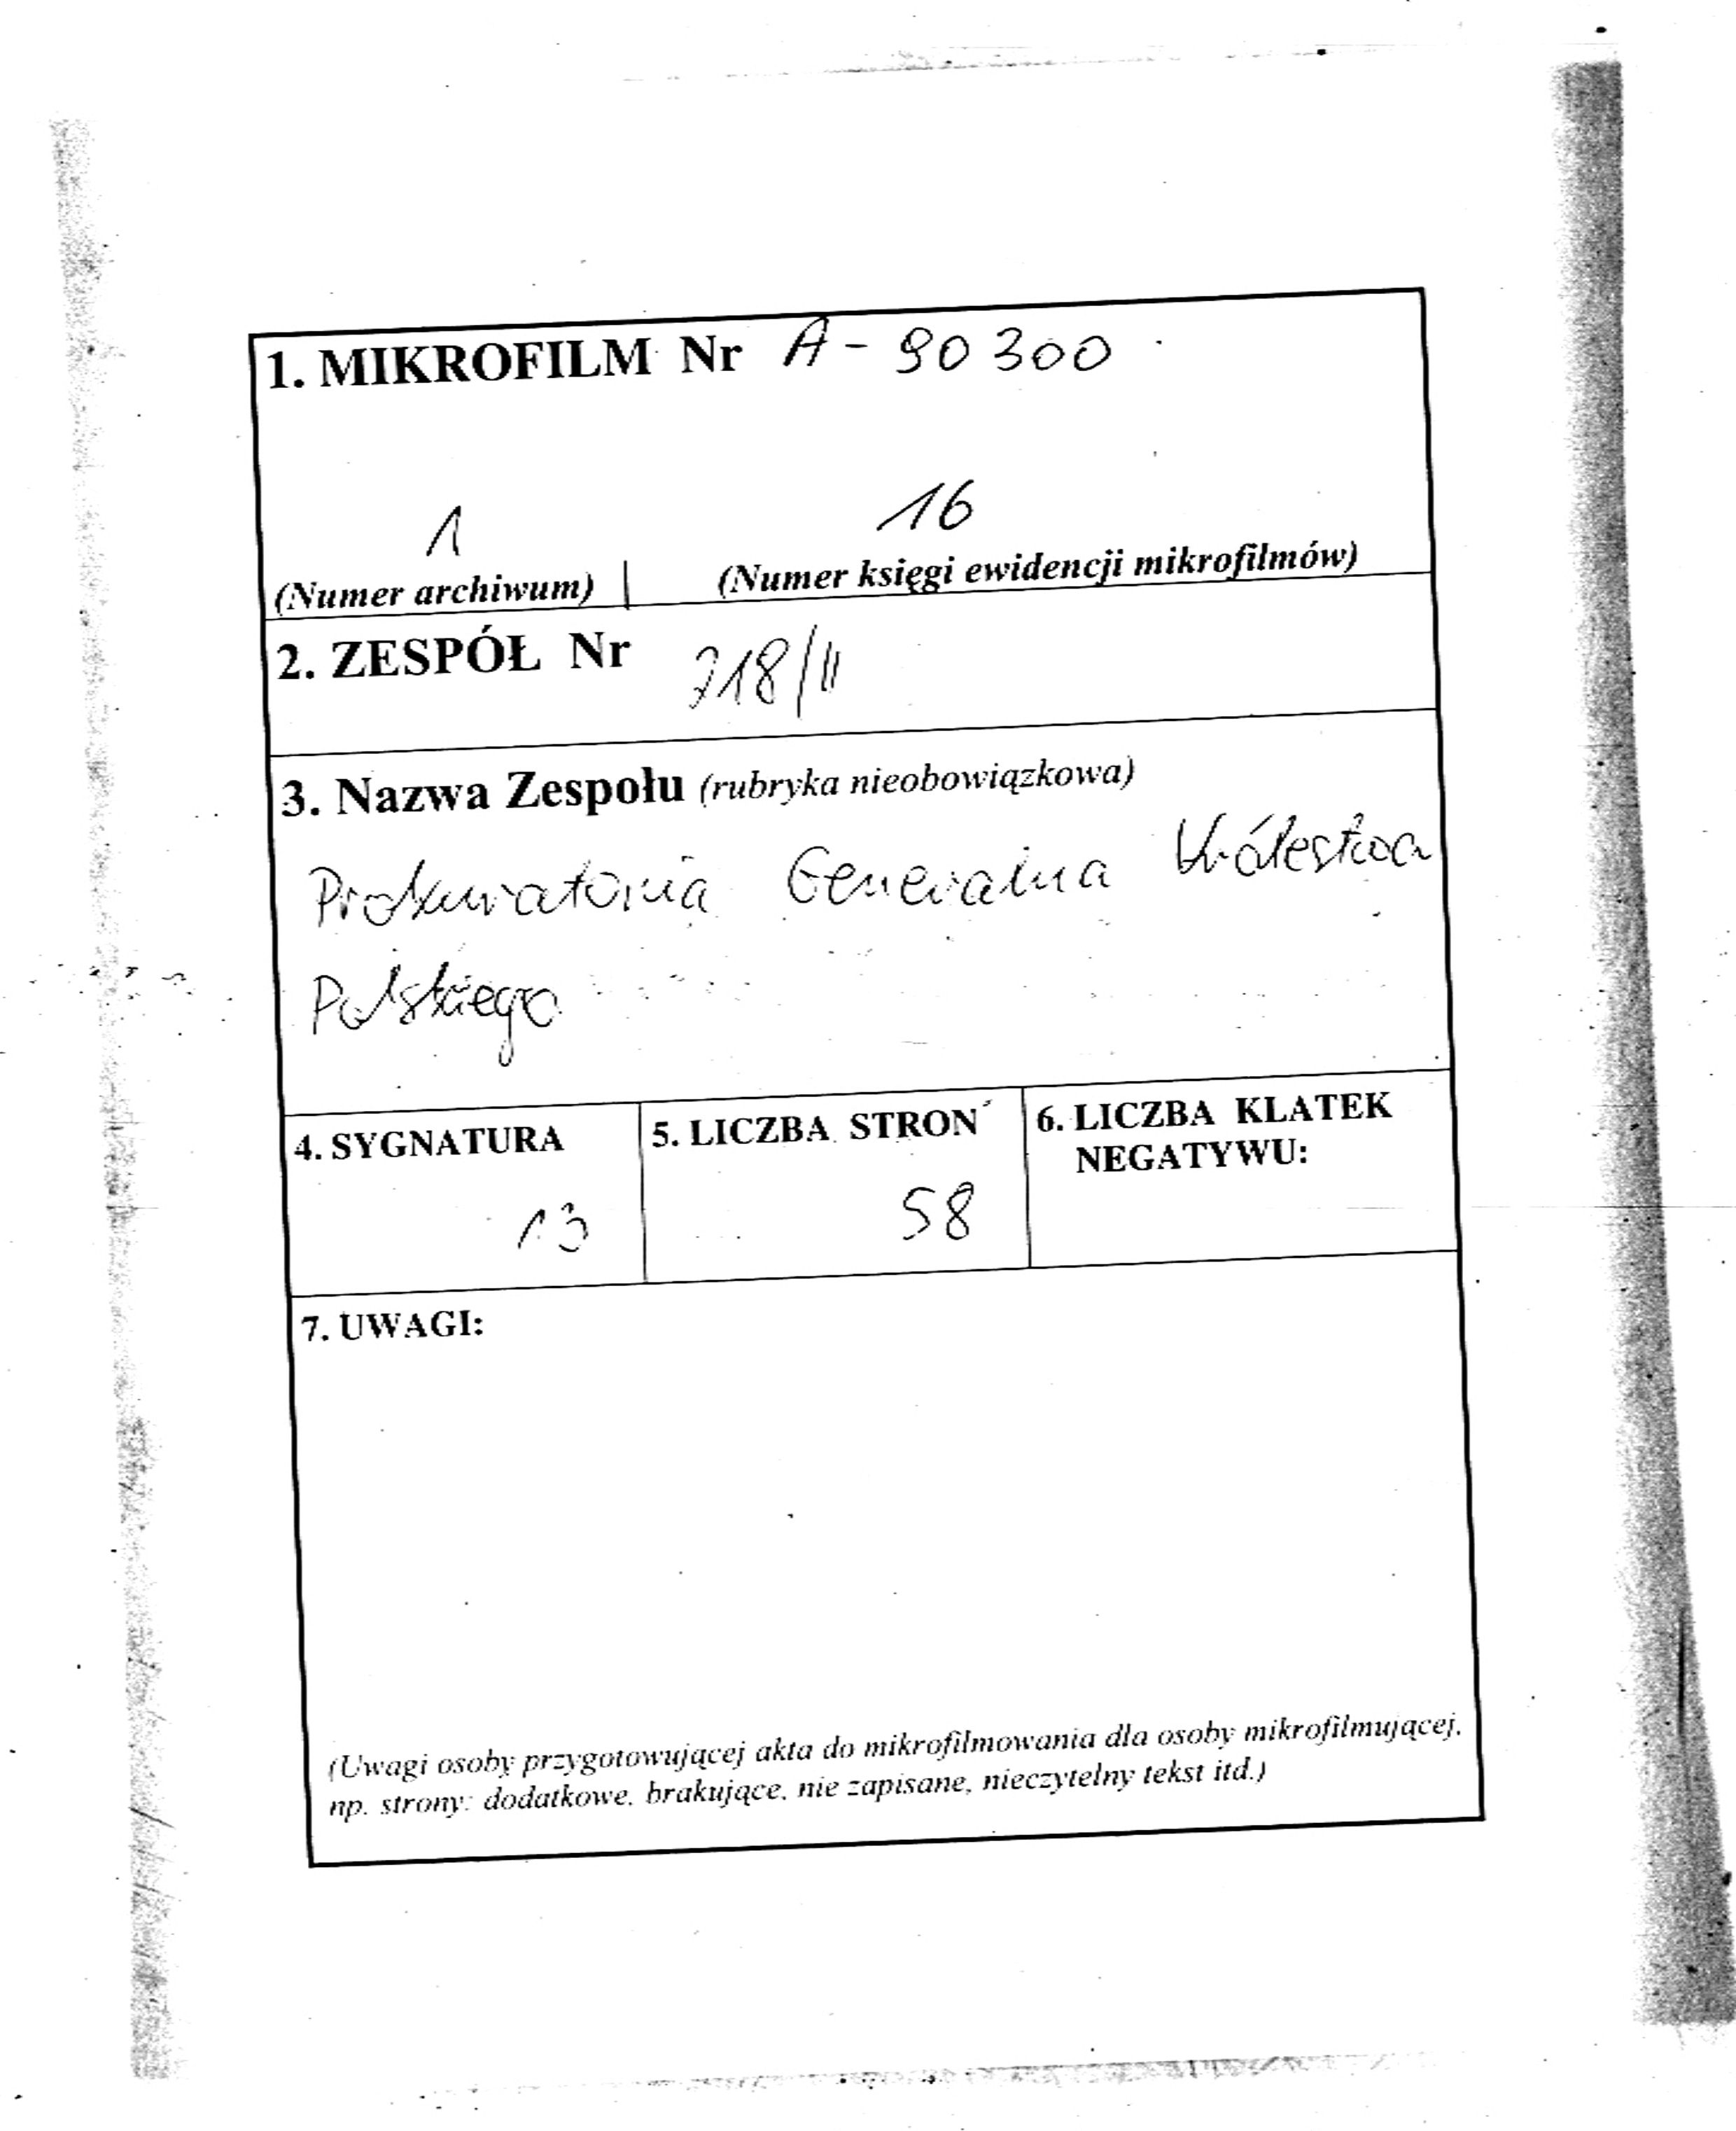 1. MIKROFILM Nr A - 90 300
1 16
(Numer archiwum) | (Numer księgi ewidencji mikrofilmów)
2. ZESPÓŁ Nr 718/II
3. Nazwa Zespołu (rubryka nieobowiązkowa)
Prokuratoria Generalna Królestwa
Polskiego
4. SYGNATURA 5. LICZBA STRON 6. LICZBA KLATEK
NEGATYWU:
13 58
7. UWAGI:
(Uwagi osoby przygotowującej akta do mikrofilmowania dla osoby mikrofilmującej,
np. strony: dodatkowe, brakujące, nie zapisane, nieczytelny tekst itd.)